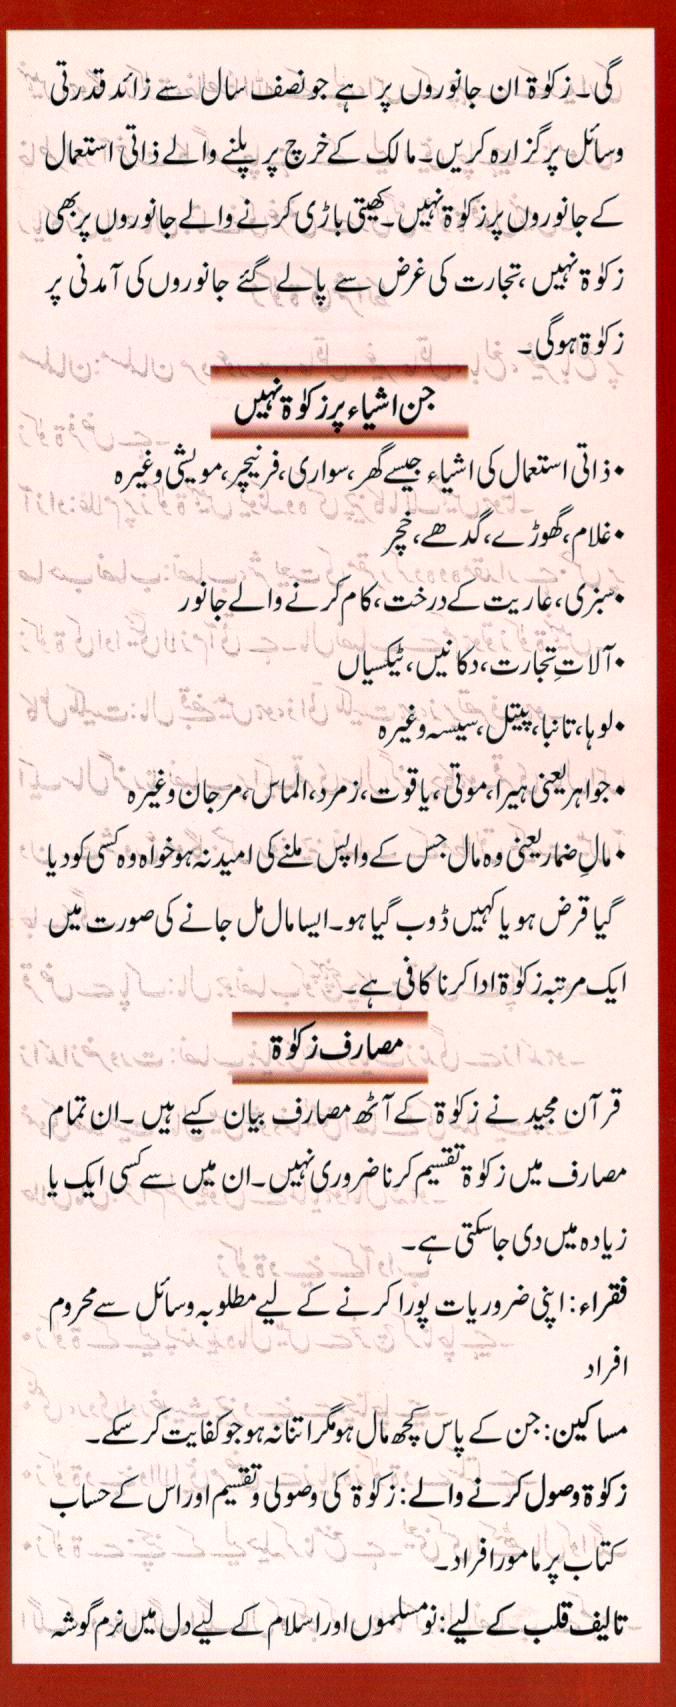 گی۔ زکوٰۃ ان جانوروں پر ہے جو نصف سال سے زائد قدرتی
وسائل پر گزارہ کریں۔ مالک کے خرچ پر پلنے والے ذاتی استعمال
کے جانوروں پر زکوٰۃ نہیں۔ کھیتی باڑی کرنے والے جانوروں پر بھی
زکوٰۃ نہیں، تجارت کی غرض سے پالے گئے جانوروں کی آمدنی پر
زکوٰۃ ہوگی۔
جن اشیاء پر زکوٰۃ نہیں
• ذاتی استعمال کی اشیاء جیسے گھر، سواری، فرنیچر، مویشی وغیرہ
• غلام، گھوڑے، گدھے، خچر
• سبزی، عاریت کے درخت، کام کرنے والے جانور
• آلاتِ تجارت، دکانیں، ٹیکسیاں
• لوہا، تانبا، پیتل، سیسہ وغیرہ
• جواہر یعنی ہیرا، موتی، یاقوت، زمرد، الماس، مرجان وغیرہ
• مالِ ضمار یعنی وہ مال جس کے واپس ملنے کی امید نہ ہو خواہ وہ کسی کو دیا
گیا قرض ہو یا کہیں ڈوب گیا ہو۔ ایسا مال مل جانے کی صورت میں
ایک مرتبہ زکوٰۃ ادا کرنا کافی ہے۔
مصارف زکوٰۃ
قرآن مجید نے زکوٰۃ کے آٹھ مصارف بیان کیے ہیں۔ ان تمام
مصارف میں زکوٰۃ تقسیم کرنا ضروری نہیں۔ ان میں سے کسی ایک یا
زیادہ میں دی جاسکتی ہے۔
فقراء: اپنی ضروریات پورا کرنے کے لیے مطلوبہ وسائل سے محروم
افراد
مساکین: جن کے پاس کچھ مال ہو مگر اتنا نہ ہو جو کفایت کر سکے۔
زکوٰۃ وصول کرنے والے: زکوٰۃ کی وصولی و تقسیم اور اس کے حساب
کتاب پر مامور افراد۔
تالیف قلب کے لیے: نو مسلموں اور اسلام کے لیے دل میں نرم گوشہ